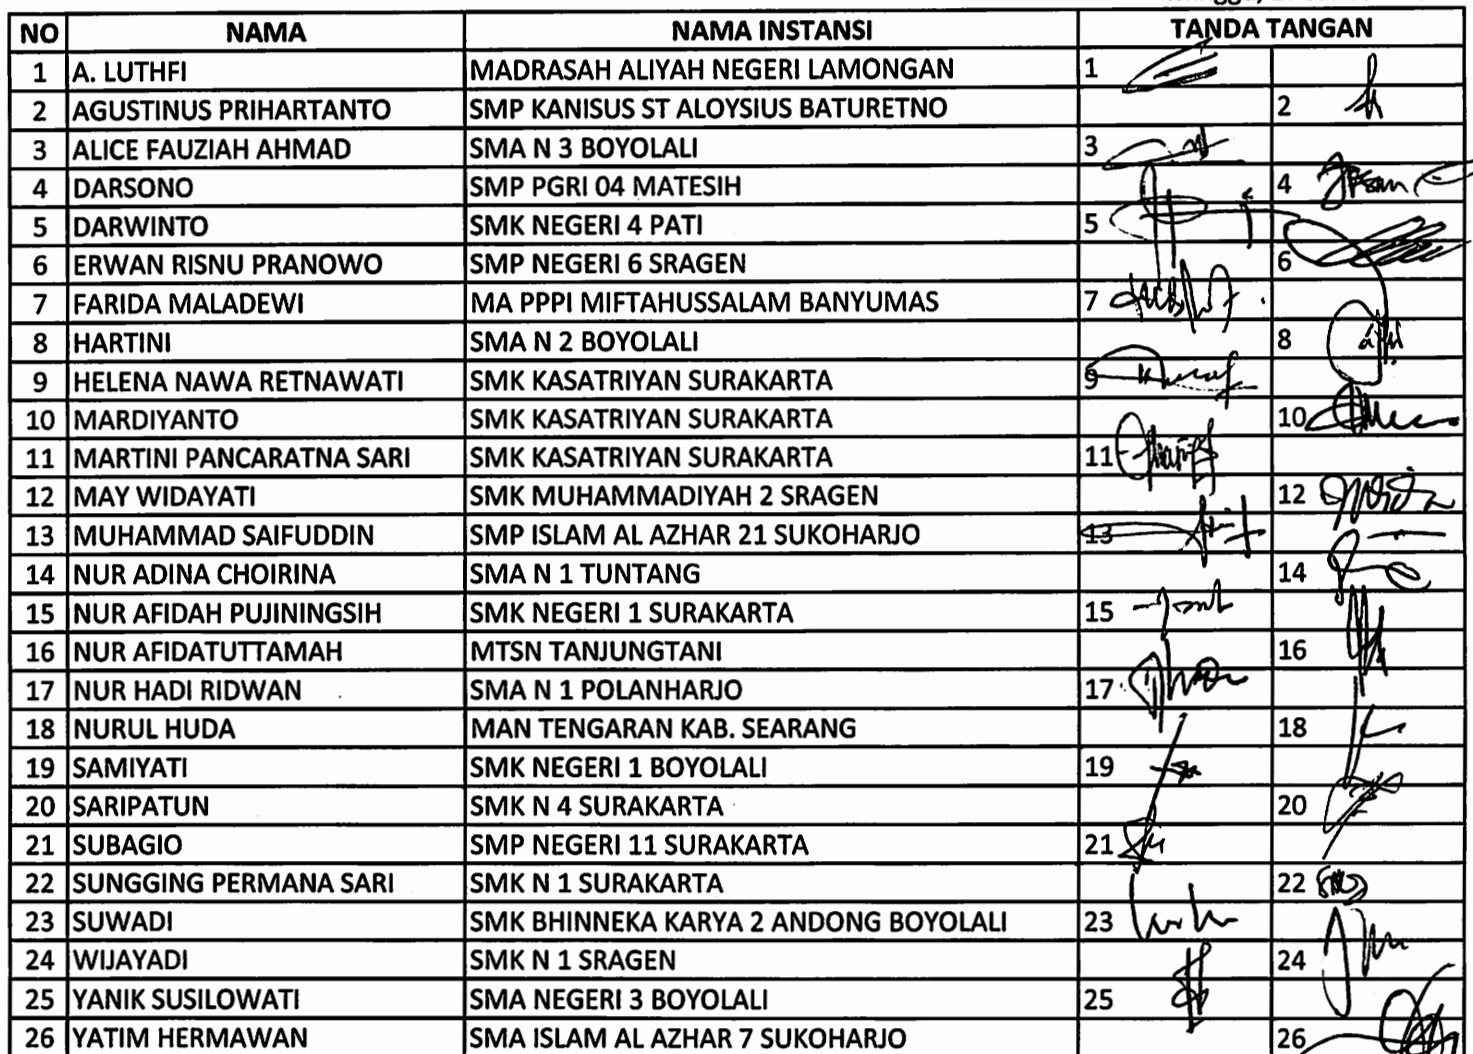 NO NAMA NAMA INSTANSI TANDA TANGAN
1 A. LUTHFI MADRASAH ALIYAH NEGERI LAMONGAN 1
2 AGUSTINUS PRIHARTANTO SMP KANISUS ST ALOYSIUS BATURETNO 2
3 ALICE FAUZIAH AHMAD SMA N 3 BOYOLALI 3
4 DARSONO SMP PGRI 04 MATESIH 4
5 DARWINTO SMK NEGERI 4 PATI 5
6 ERWAN RISNU PRANOWO SMP NEGERI 6 SRAGEN 6
7 FARIDA MALADEWI MA PPPI MIFTAHUSSALAM BANYUMAS 7
8 HARTINI SMA N 2 BOYOLALI 8
9 HELENA NAWA RETNAWATI SMK KASATRIYAN SURAKARTA 9
10 MARDIYANTO SMK KASATRIYAN SURAKARTA 10
11 MARTINI PANCARATNA SARI SMK KASATRIYAN SURAKARTA 11
12 MAY WIDAYATI SMK MUHAMMADIYAH 2 SRAGEN 12
13 MUHAMMAD SAIFUDDIN SMP ISLAM AL AZHAR 21 SUKOHARJO 13
14 NUR ADINA CHOIRINA SMA N 1 TUNTANG 14
15 NUR AFIDAH PUJININGSIH SMK NEGERI 1 SURAKARTA 15
16 NUR AFIDATUTTAMAH MTSN TANJUNGTANI 16
17 NUR HADI RIDWAN SMA N 1 POLANHARJO 17
18 NURUL HUDA MAN TENGARAN KAB. SEARANG 18
19 SAMIYATI SMK NEGERI 1 BOYOLALI 19
20 SARIPATUN SMK N 4 SURAKARTA 20
21 SUBAGIO SMP NEGERI 11 SURAKARTA 21
22 SUNGGING PERMANA SARI SMK N 1 SURAKARTA 22
23 SUWADI SMK BHINNEKA KARYA 2 ANDONG BOYOLALI 23
24 WIJAYADI SMK N 1 SRAGEN 24
25 YANIK SUSILOWATI SMA NEGERI 3 BOYOLALI 25
26 YATIM HERMAWAN SMA ISLAM AL AZHAR 7 SUKOHARJO 26